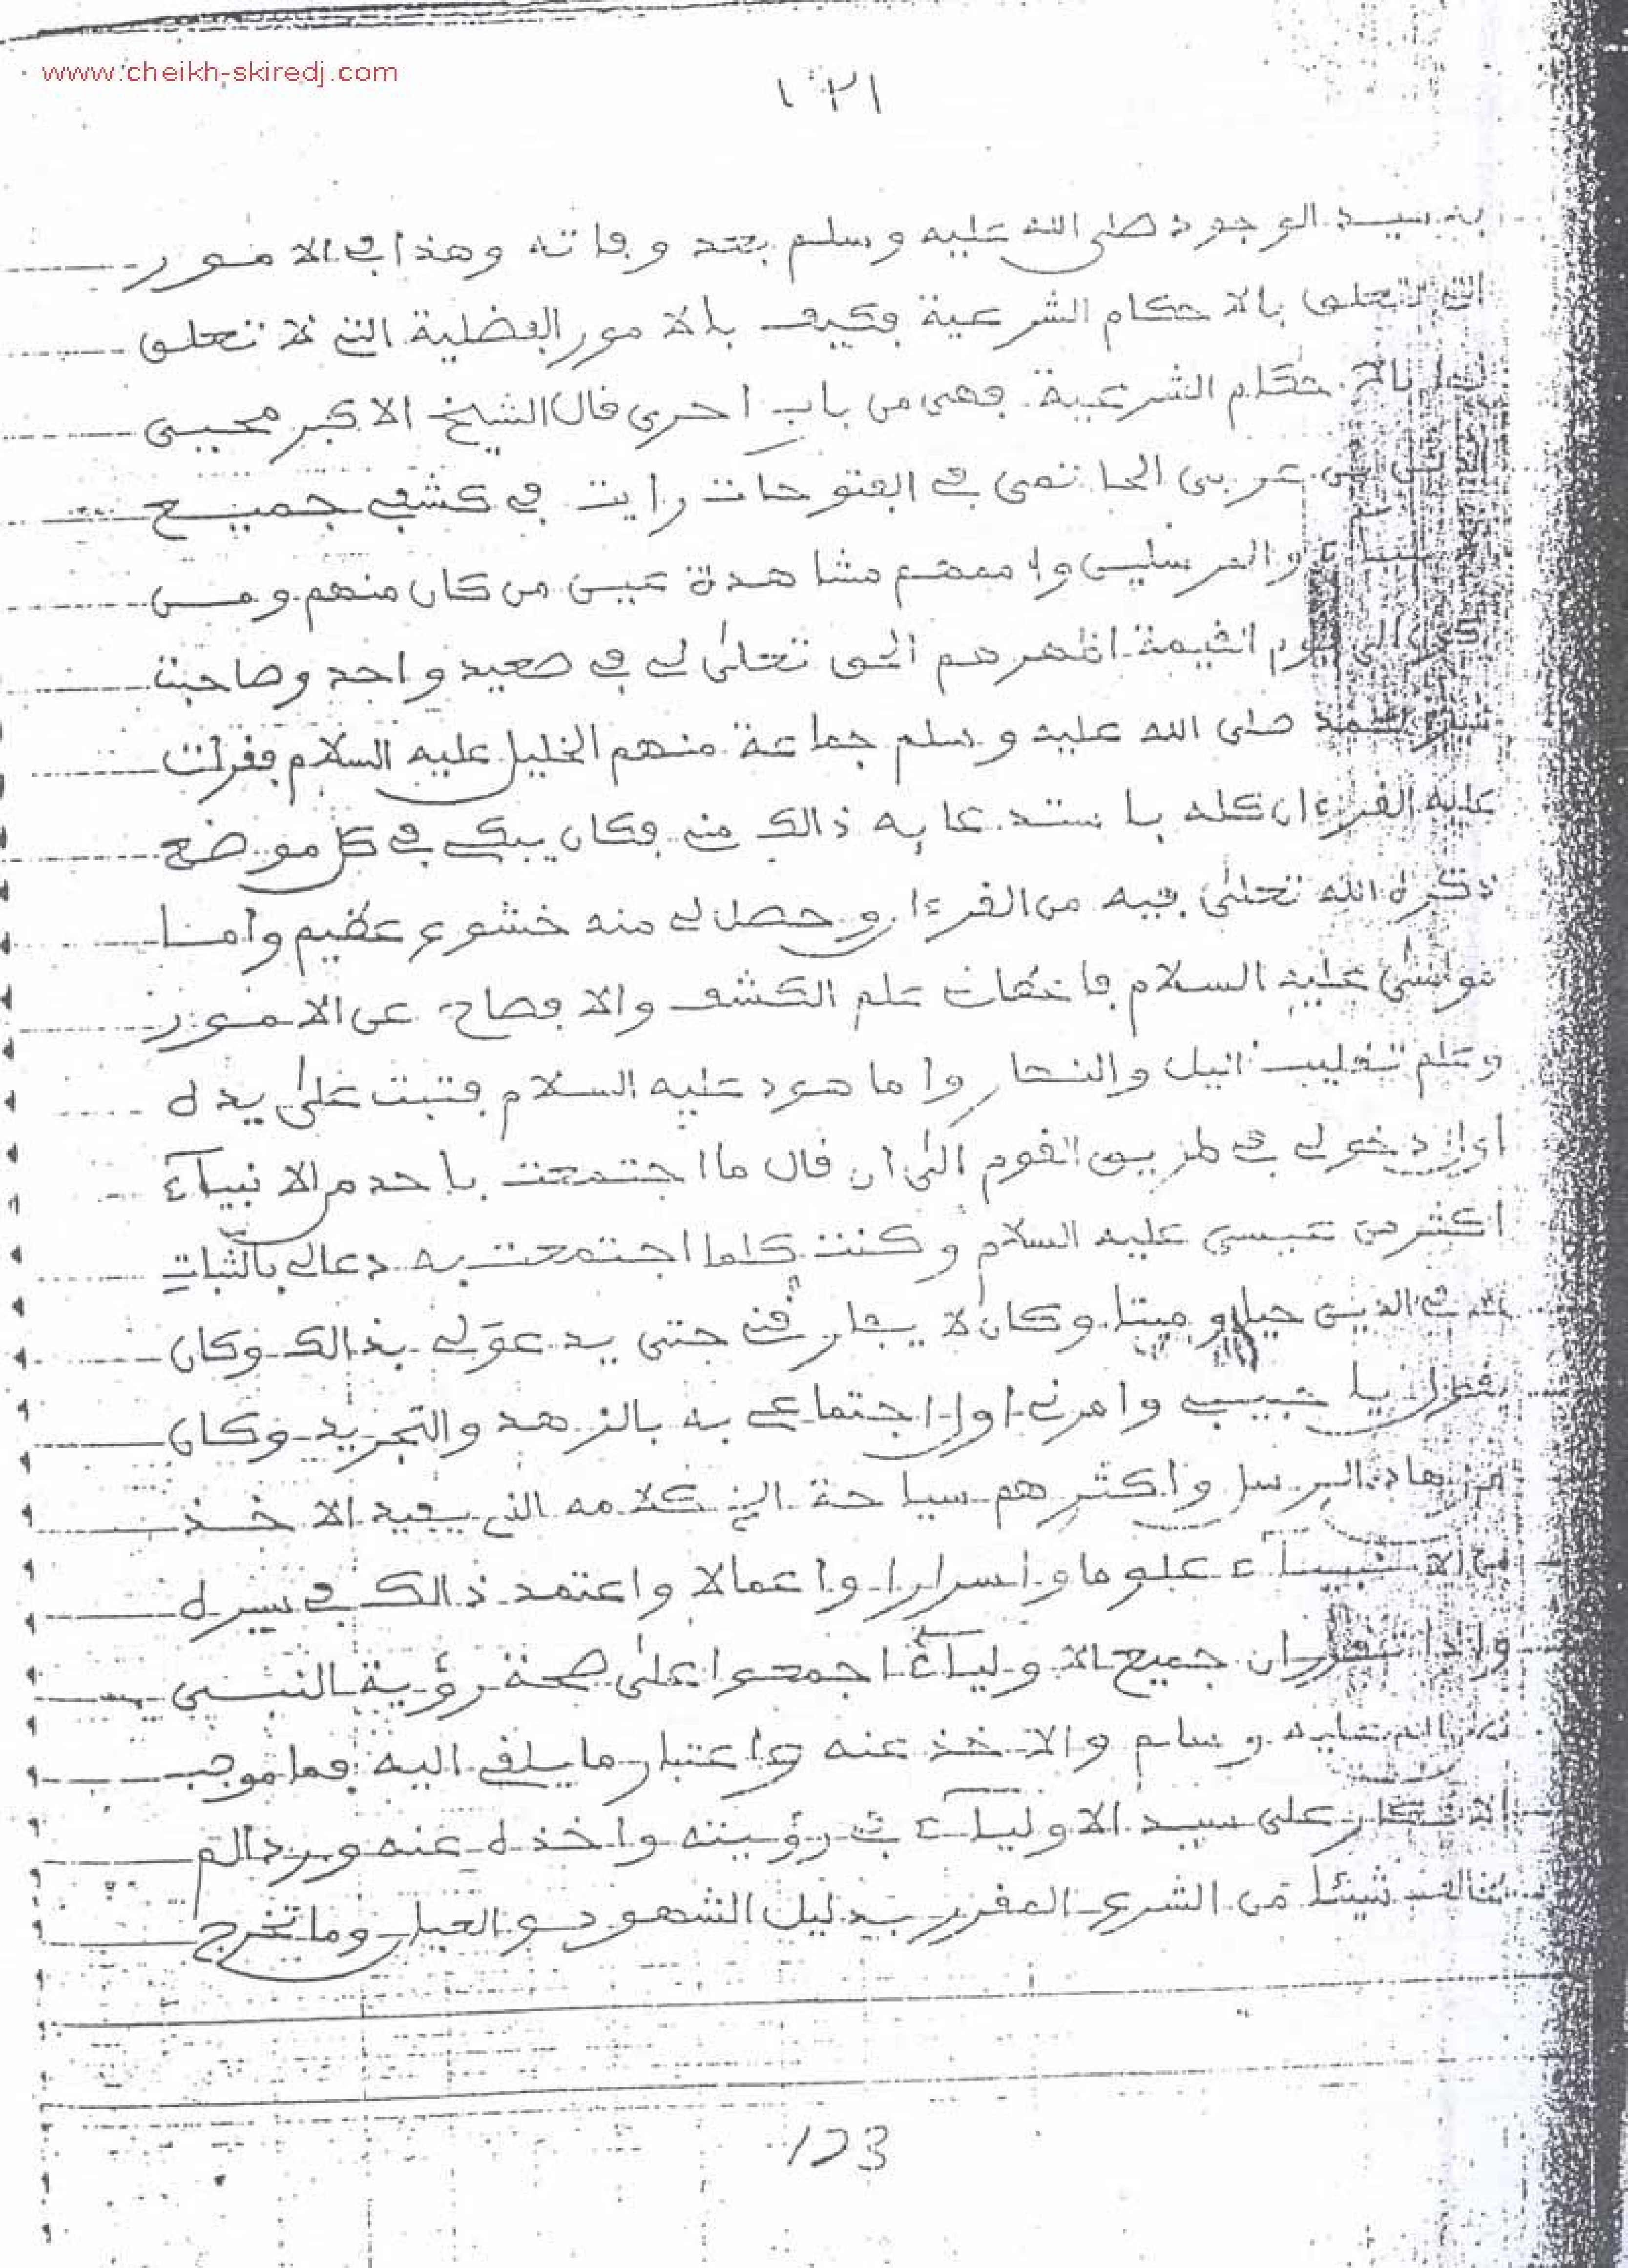 www.cheikh-skiredj.com
١٢١
به سيد الوجود صلى الله عليه وسلم بعد وفاته وهذا في الامور
التي تتعلق بالاحكام الشرعية فكيف بالامور الفضلية التي لا تعلق
بالاحكام الشرعية فهى من باب احرى قال الشيخ الاكبر محيى
بن عربى الحاتمى في الفتوحات رايت في كشفي جميع
والمرسلين واممهم مشاهدة عين من كان منهم ومن
الى يوم القيمة اظهرهم الحق تعلى لى في صعيد واحد وصاحبت
محمد صلى الله عليه وسلم جماعة منهم الخليل عليه السلام فقرات
عليه القرءان كله باستدعايه ذالك منى فكان يبكى في كل موضع
ذكره الله تعلى فيه من القرءان وحصل لى منه خشوع عظيم واما
موسى عليه السلام فاعطانى علم الكشف والافصاح عن الامور
وعلم تقليب اليل والنهار واما هود عليه السلام فتبت على يده
اول دخولى في طريق القوم الى ان قال ما اجتمعت باحد من الانبياء
اكثر من عيسى عليه السلام وكنت كلما اجتمعت به دعا لى بالثبات
في الدين حيا وميتا وكان لا يفارقنى حتى يدعو لى بذالك وكان
يقول يا حبيبى وامرنى اول اجتماعى به بالزهد والتجريد وكان
من زهاد الرسل واكثرهم سياحة الخ كلامه الذى يفيد الاخذ
من الانبياء علوما واسرارا واعمالا واعتمد ذالك في سيره
واذا تقرر ان جميع الاولياء اجمعوا على صحة رؤية النبى
صلى الله عليه وسلم والاخذ عنه واعتبار ما يلقى اليه فما موجب
الانكار على سيد الاولياء في رؤيته واخذه عنه ورد الم
يخالف شيئا من الشرع المقرر بدليل الشهود والعيان وما تخرج
123